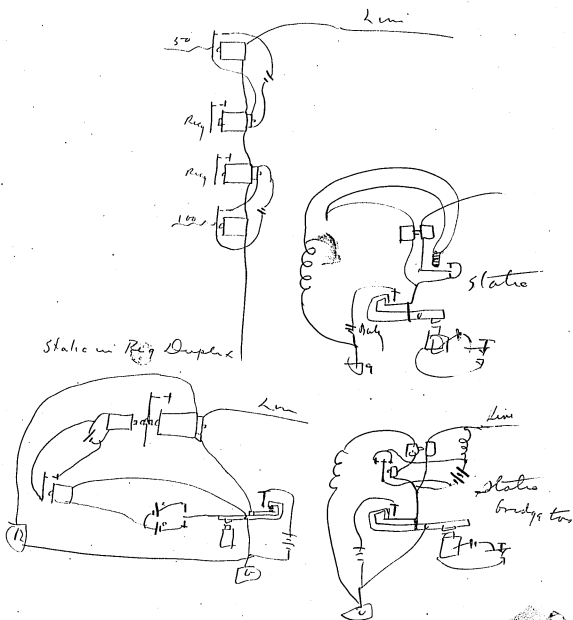 Line
50
Reg
Reg
100
Static
Static in Reg Duplex
Line
R
G
Line
Static
bridge